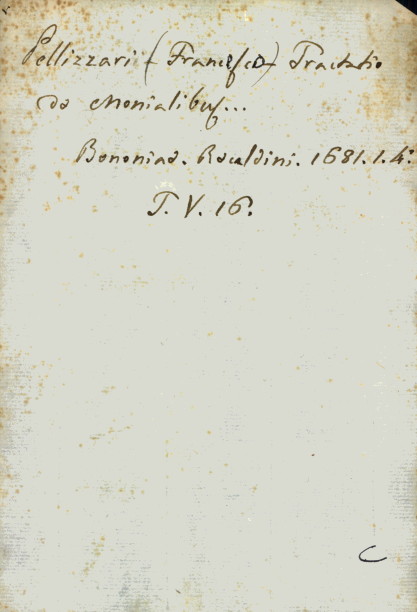 Pellizzari (Francesco) Tractatio
de Monialibus...
Bononiae. Recaldini. 1681. 1. 4:
T. V. 16.
C